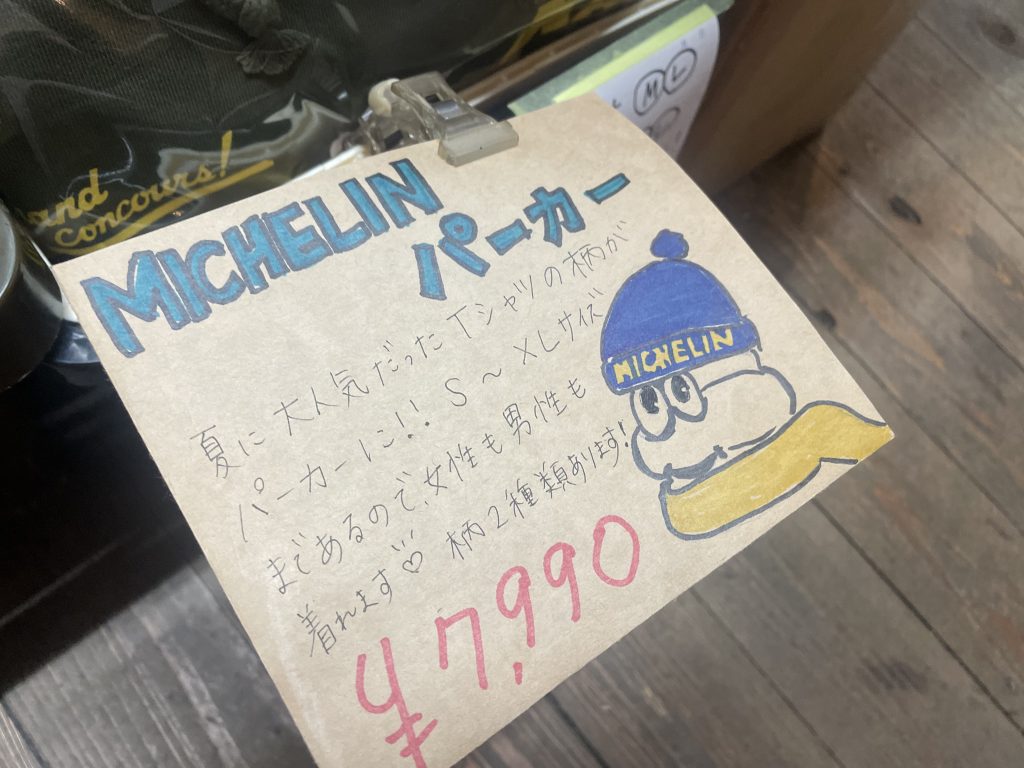 and
concours!
M L
MICHELIN
パーカー
夏に大人気だったTシャツの柄が
パーカーに!! S～XLサイズ
まであるので、女性も男性も
着れます♡ 柄2種類あります!
¥7,990
MICHELIN